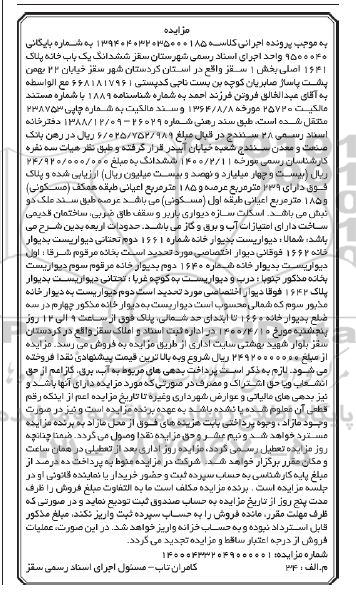 مزایده
به موجب پرونده اجرائی کلاسه ۱۳۹۴۰۴۰۳۲۰۳۵۰۰۰۱۸۵ به شماره بایگانی
۹۵۰۰۰۴۰ واحد اجرای اسناد رسمی شهرستان سقز ششدانگ یک باب خانه پلاک
۱۶۴۱ اصلی بخش ۱ سقز واقع در استان کردستان شهر سقز خیابان ۲۲ بهمن
پشت پاساژ صابریان کوچه بن بست ناجی کدپستی ۶۶۸۱۸۱۷۹۶۱ مع الواسطه
به آقای عبدالخالق فروتن فرزند احمد به شماره شناسنامه ۱۸۸۹ با شماره مستند
مالکیت ۲۵۷۲۰ مورخه ۱۳۶۴/۸/۸ و سند مالکیت به شماره چاپی ۲۳۸۷۵۳
منتقل شده است، طبق سند رهنی شماره ۲۶۰۲۹ – ۱۳۸۸/۱۲/۰۹ دفترخانه
اسناد رسمی ۲۸ سنندج در قبال مبلغ ۶/۰۲۵/۷۵۲/۹۸۹ ریال در رهن بانک
صنعت و معدن سنندج شعبه خیابان آبیدر قرار گرفته و طبق نظر هیات سه نفره
کارشناسان رسمی مورخه ۱۴۰۰/۲/۱۱ ششدانگ به مبلغ ۲۴/۹۲۰/۰۰۰/۰۰۰
ریال (بیست و چهار میلیارد و نهصد و بیست میلیون ریال) ارزیابی شده و پلاک
فوق دارای ۲۳۹ مترمربع عرصه و ۱۸۵ مترمربع اعیانی طبقه همکف (مسکونی)
و ۱۸۵ مترمربع اعیانی طبقه اول (مسکونی) می باشد عرصه طبق سند ملک دو
نبش می باشد. اسکلت سازه دیواری باربر و سقف طاق ضربی، ساختمان قدیمی
ساخت دارای امتیازات آب و برق و گاز می باشد. حدودات اربعه بدین شرح می
باشد، شمالا: دیواریست بدیوار خانه شماره ۱۶۶۱ دوم تحتانی دیواریست بدیوار
خانه ۱۶۶۲ فوقانی دیوار اختصاصی مورد تحدید است بخانه مرقوم شرقا: اول
دیواریست بدیوار خانه شماره ۱۶۴۰ دوم بدیوار خانه مرقوم سوم دیواریست
بخانه مذکور جنوبا: درب و دیواریست به کوچه غربا: تحتانی دیواریست بدیوار
پلاک ۱۶۴۲ فوقا دیوار اختصاصی مورد تحدید است دوم دیواریست به دیوار خانه
مذبور سوم که شمالی محسوب است دیواریست به دیوار خانه مذکور چهارم در سه
ضلع بدیوار خانه ۱۶۶۰ تا ابتدای حد شمالی، پلاک فوق از ساعت ۹ الی ۱۲ روز
پنجشنبه مورخ ۱۴۰۰/۴/۱۰ در اداره ثبت اسناد و املاک سقز واقع در کردستان
سقز بلوار شهید بهشتی سایت اداری از طریق مزایده به فروش می رسد. مزایده
از مبلغ ۲۴۹۲۰۰۰۰۰۰۰ ریال شروع و به بالا ترین قیمت پیشنهادی نقدا فروخته
می شود. لازم به ذکر است پرداخت بدهی های مربوط به آب، برق، گاز اعم از حق
انشعاب و یا حق اشتراک و مصرف در صورتی که مورد مزایده دارای آنها باشد و
نیز بدهی های مالیاتی و عوارض شهرداری و غیره تا تاریخ مزایده اعم از اینکه رقم
قطعی آن معلوم شده یا نشده باشد به عهده برنده مزایده است و نیز در صورت
وجود مازاد، وجوه پرداختی بابت هزینه های فوق از محل مازاد به برنده مزایده
مسترد خواهد شد و نیم عشر و حق مزایده نقدا وصول می گردد. ضمنا چنانچه
روز مزایده تعطیل رسمی گردد، مزایده روز اداری بعد از تعطیلی در همان ساعت
و مکان مقرر برگزار خواهد شد. شرکت در مزایده منوط به پرداخت ده درصد از
مبلغ پایه کارشناسی به حساب سپرده ثبت و حضور خریدار یا نماینده قانونی او در
جلسه مزایده است. برنده مزایده مکلف است ما به التفاوت مبلغ فروش را ظرف
مدت پنج روز از تاریخ مزایده به حساب صندوق ثبت تودیع نماید و در صورتی که
ظرف مهلت مقرر، مانده فروش را به حساب سپرده ثبت واریز نکند، مبلغ مذکور
قابل استرداد نبوده و به حساب خزانه واریز خواهد شد. در این صورت، عملیات
فروش از درجه اعتبار ساقط و مزایده تجدید می گردد.
شماره مزایده: ۱۴۰۰۰۴۳۳۲۰۴۹۰۰۰۰۰۱
م.الف: ۳۴ کامران تاب – مسئول اجرای اسناد رسمی سقز